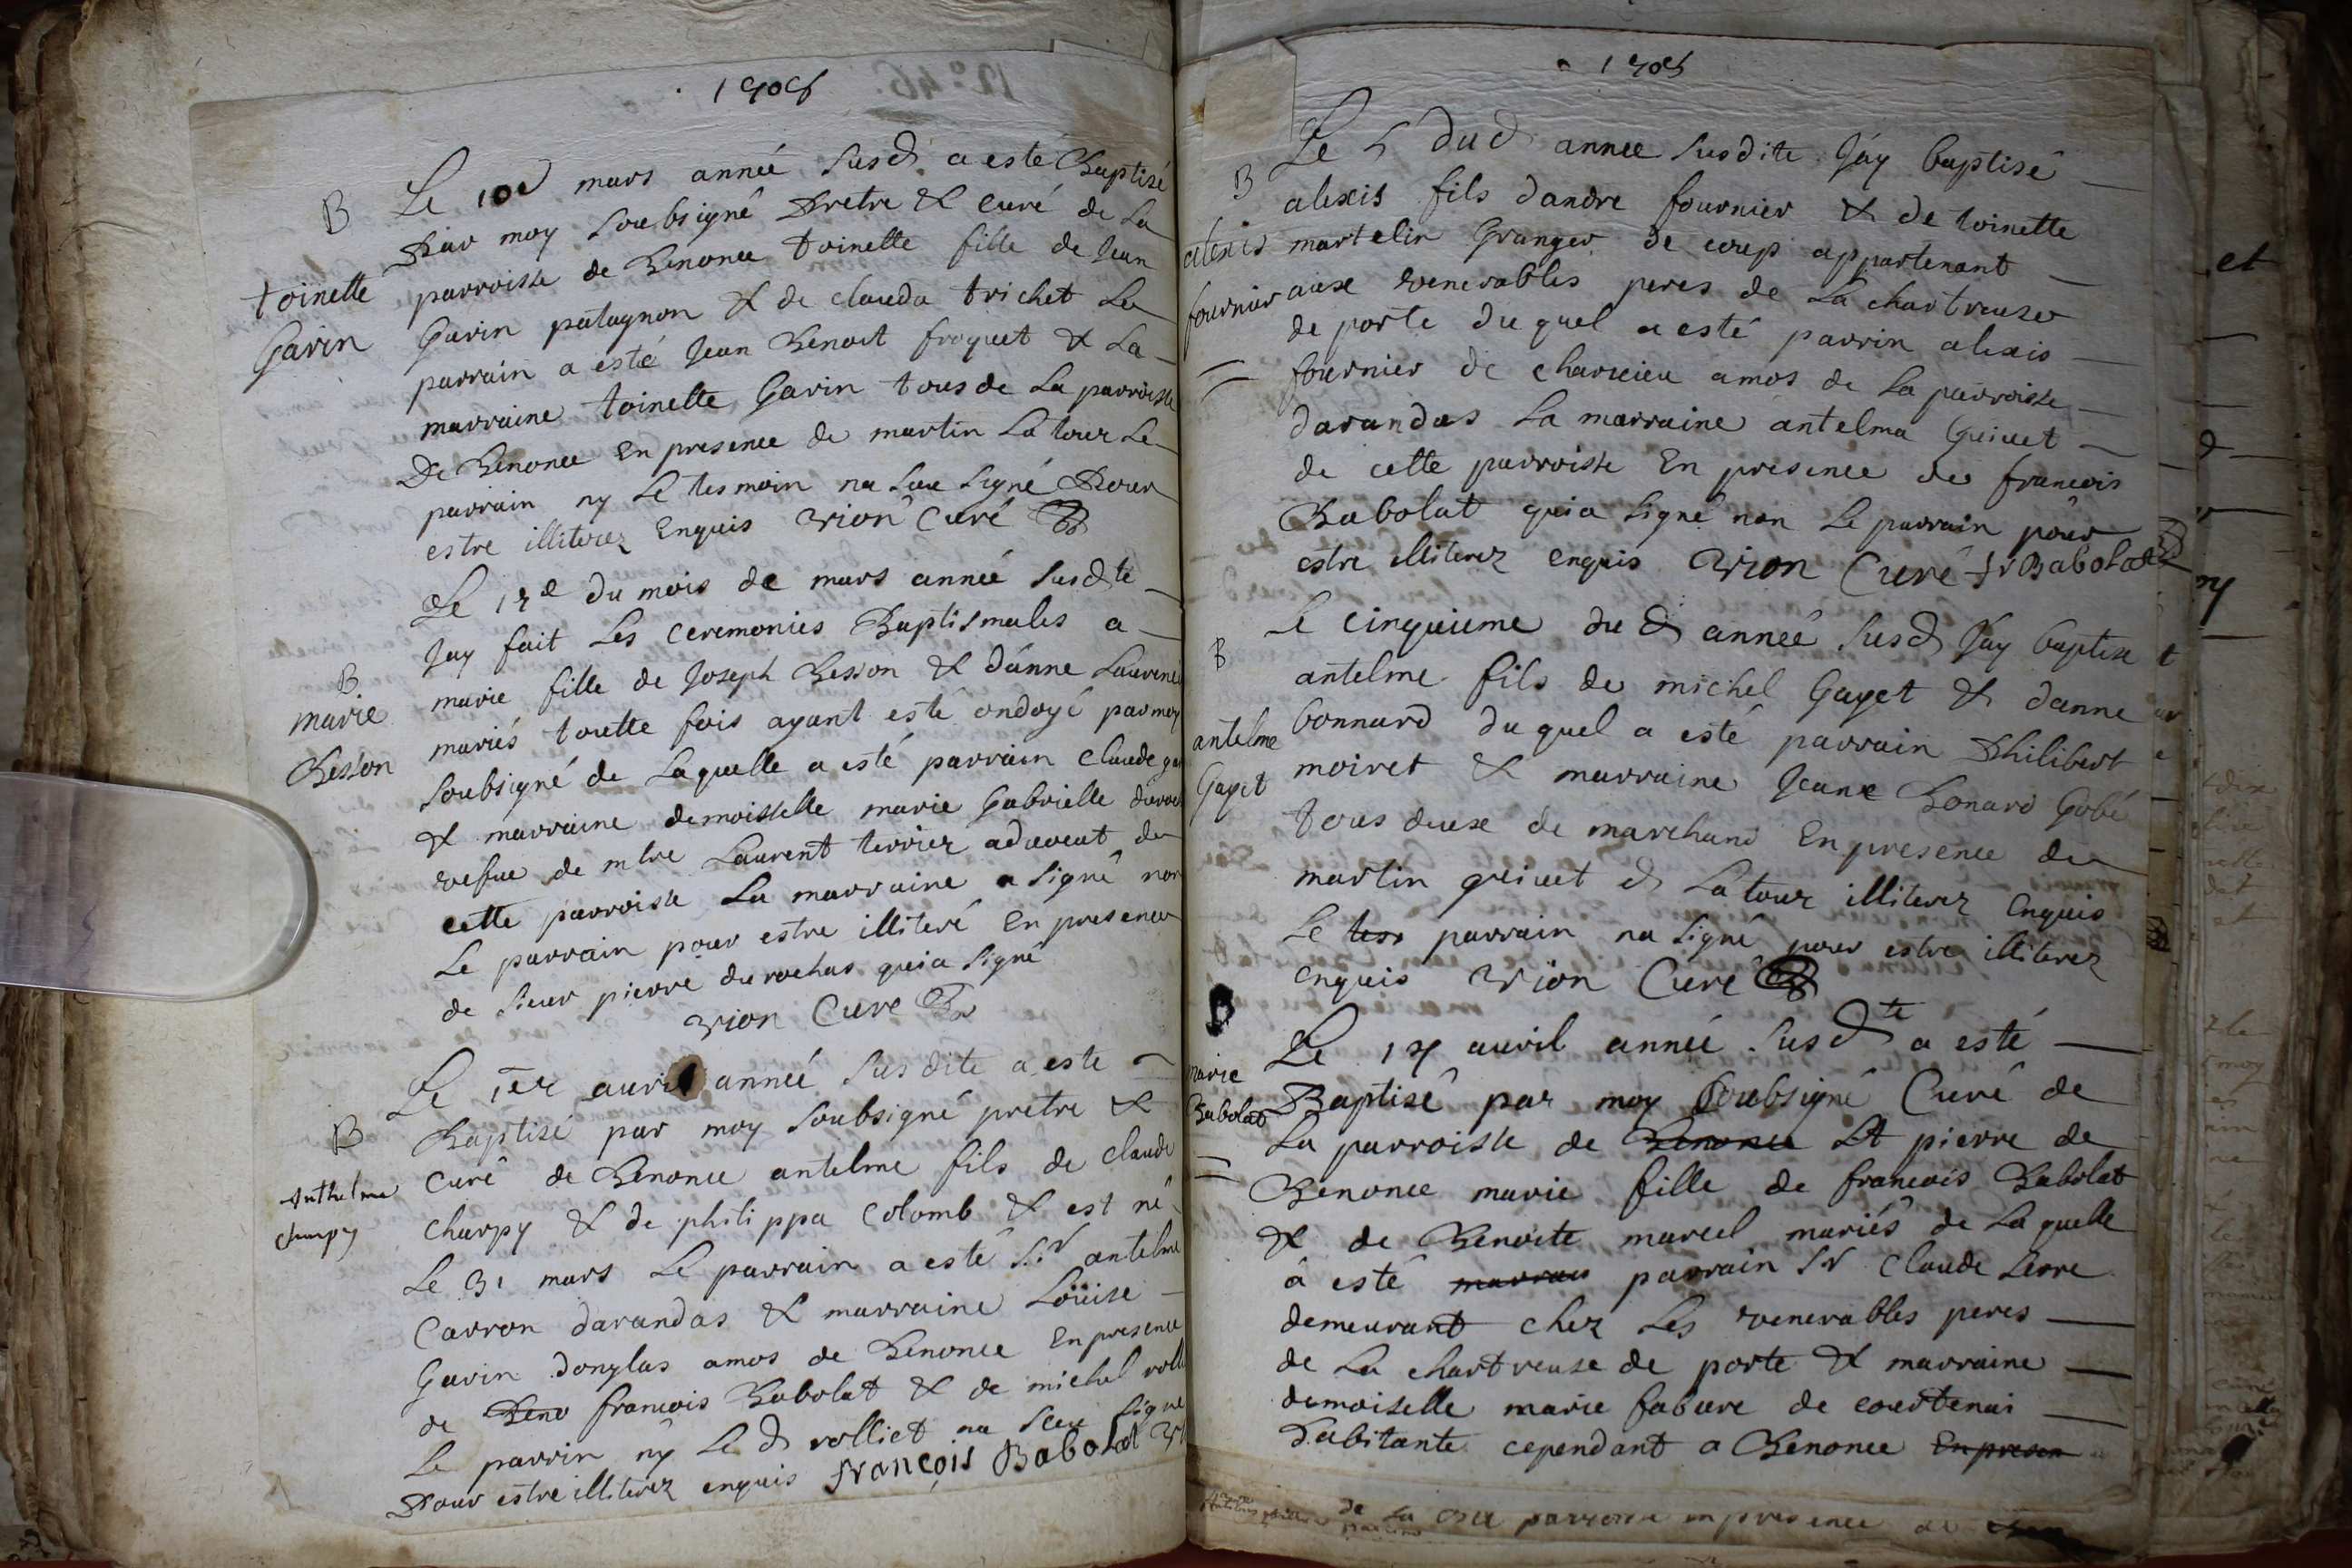 1705
Le 10e mars année susd a esté Baptisé
Par moy soubsigné Pretre & curé de La
parroisse de Benonce toinette fille de Jean
Garin patagnon & de clauda trichet Le
parrain a esté Jean Benoit froquet & La
marraine toinette Garin tous de La parroisse
De Benonce En presence de martin La tour Le
parrain ny Le tesmoin na sceu signé Pour
estre illiterez Enquis vion Curé
B
toinette
Garin
Le 17e du mois de mars année susdte
Jay fait Les ceremonies Baptismales a
marie fille de Joseph Besson & danne Laurence
mariés toutte fois ayant esté ondoyé par moy
soubsigné de Laquelle a esté parrain Claude
& marraine demoisselle marie Gabrielle
vefue de mtre Laurent terrier aduocat de
cette parroisse La marraine a signé non
Le parrain pour estre illiteré En presence
de sieur pierre durochas qui a signé
vion Curé
B
marie
Besson
Le 1er auril année susdite a esté
Baptisé par moy soubsigné pretre &
Curé de Benonce antelme fils de claude
Charpy & de philippa Colomb & est né
Le 31 mars Le parrain a esté Sr antelme
Carron darandas & marraine Loüise
Garin donglas amos de Benonce En presence
de Beno francois Babolat & de michel
Le parrin ny Le d rolliet na sceu signe
Pour estre illiterez enquis françois Babolat
B
Anthelme
Charpy
1705
Le 5 dud annee susdite Jay baptisé
alexis fils dandre fournier & de toinette
martelin Granger de coup appartenant
aux venerables peres de La chartreuse
de porte duquel a esté parrin alexis
fournier de charuieu amos de La parroisse
darandas La marraine antelma Griuet
de cette parroisse En presence de francois
Babolat qui a signé non Le parrain pour
estre illiterez enquis vion Curé fr Babolat
B
alexis
fournier
Le cinquieme du d année susd Jay baptise
antelme fils de michel Gayet & danne
bonnard duquel a esté parrain Philibert
moiret & marraine Jeane Bonard Gobé
tous deux de marchand En presence de
martin griuet d La tour illiterez Enquis
Le tes parrain na signé pour estre illiterez
enquis vion Curé
B
antelme
Gayet
Le 17 auril année susdte a esté
Baptisé par moy soubsigné Curé de
La parroisse de Benonce St pierre de
Benonce marie fille de francois Babolat
& de Benoite marcel mariés de Laquelle
à esté marrain parrain Sr Claude Serre
demeurant chez Les venerables peres
de La chartreuse de porte & marraine
demoiselle marie fabure de courtenai
habitante cependant a Benonce En presen
B
marie
Babolat
de La parroisse en presence de